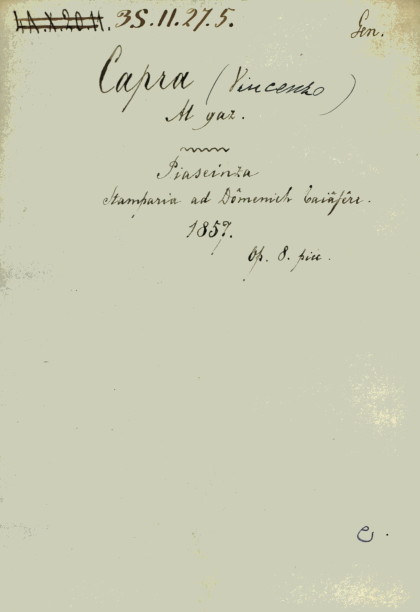 35.11.27.5. Gen.
Capra (Vincenzo)
Al gaz.
Piaseinza
Stamparia ad Dômenich Taiäfêre.
1857.
Op. 8. picc.
C.